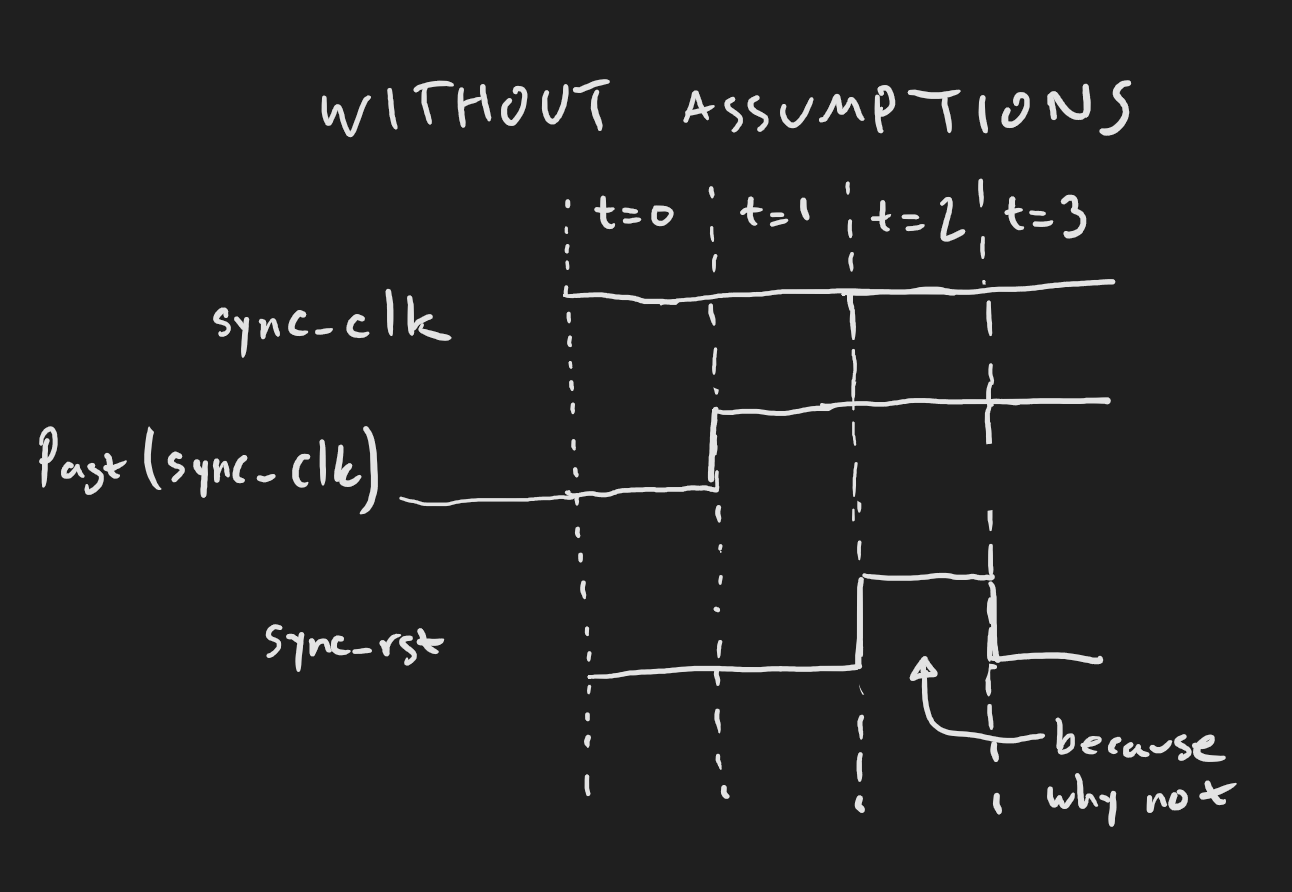 WITHOUT ASSUMPTIONS
t=0 t=1 t=2 t=3
sync_clk
Past(sync_clk)
sync_rst
because
why not